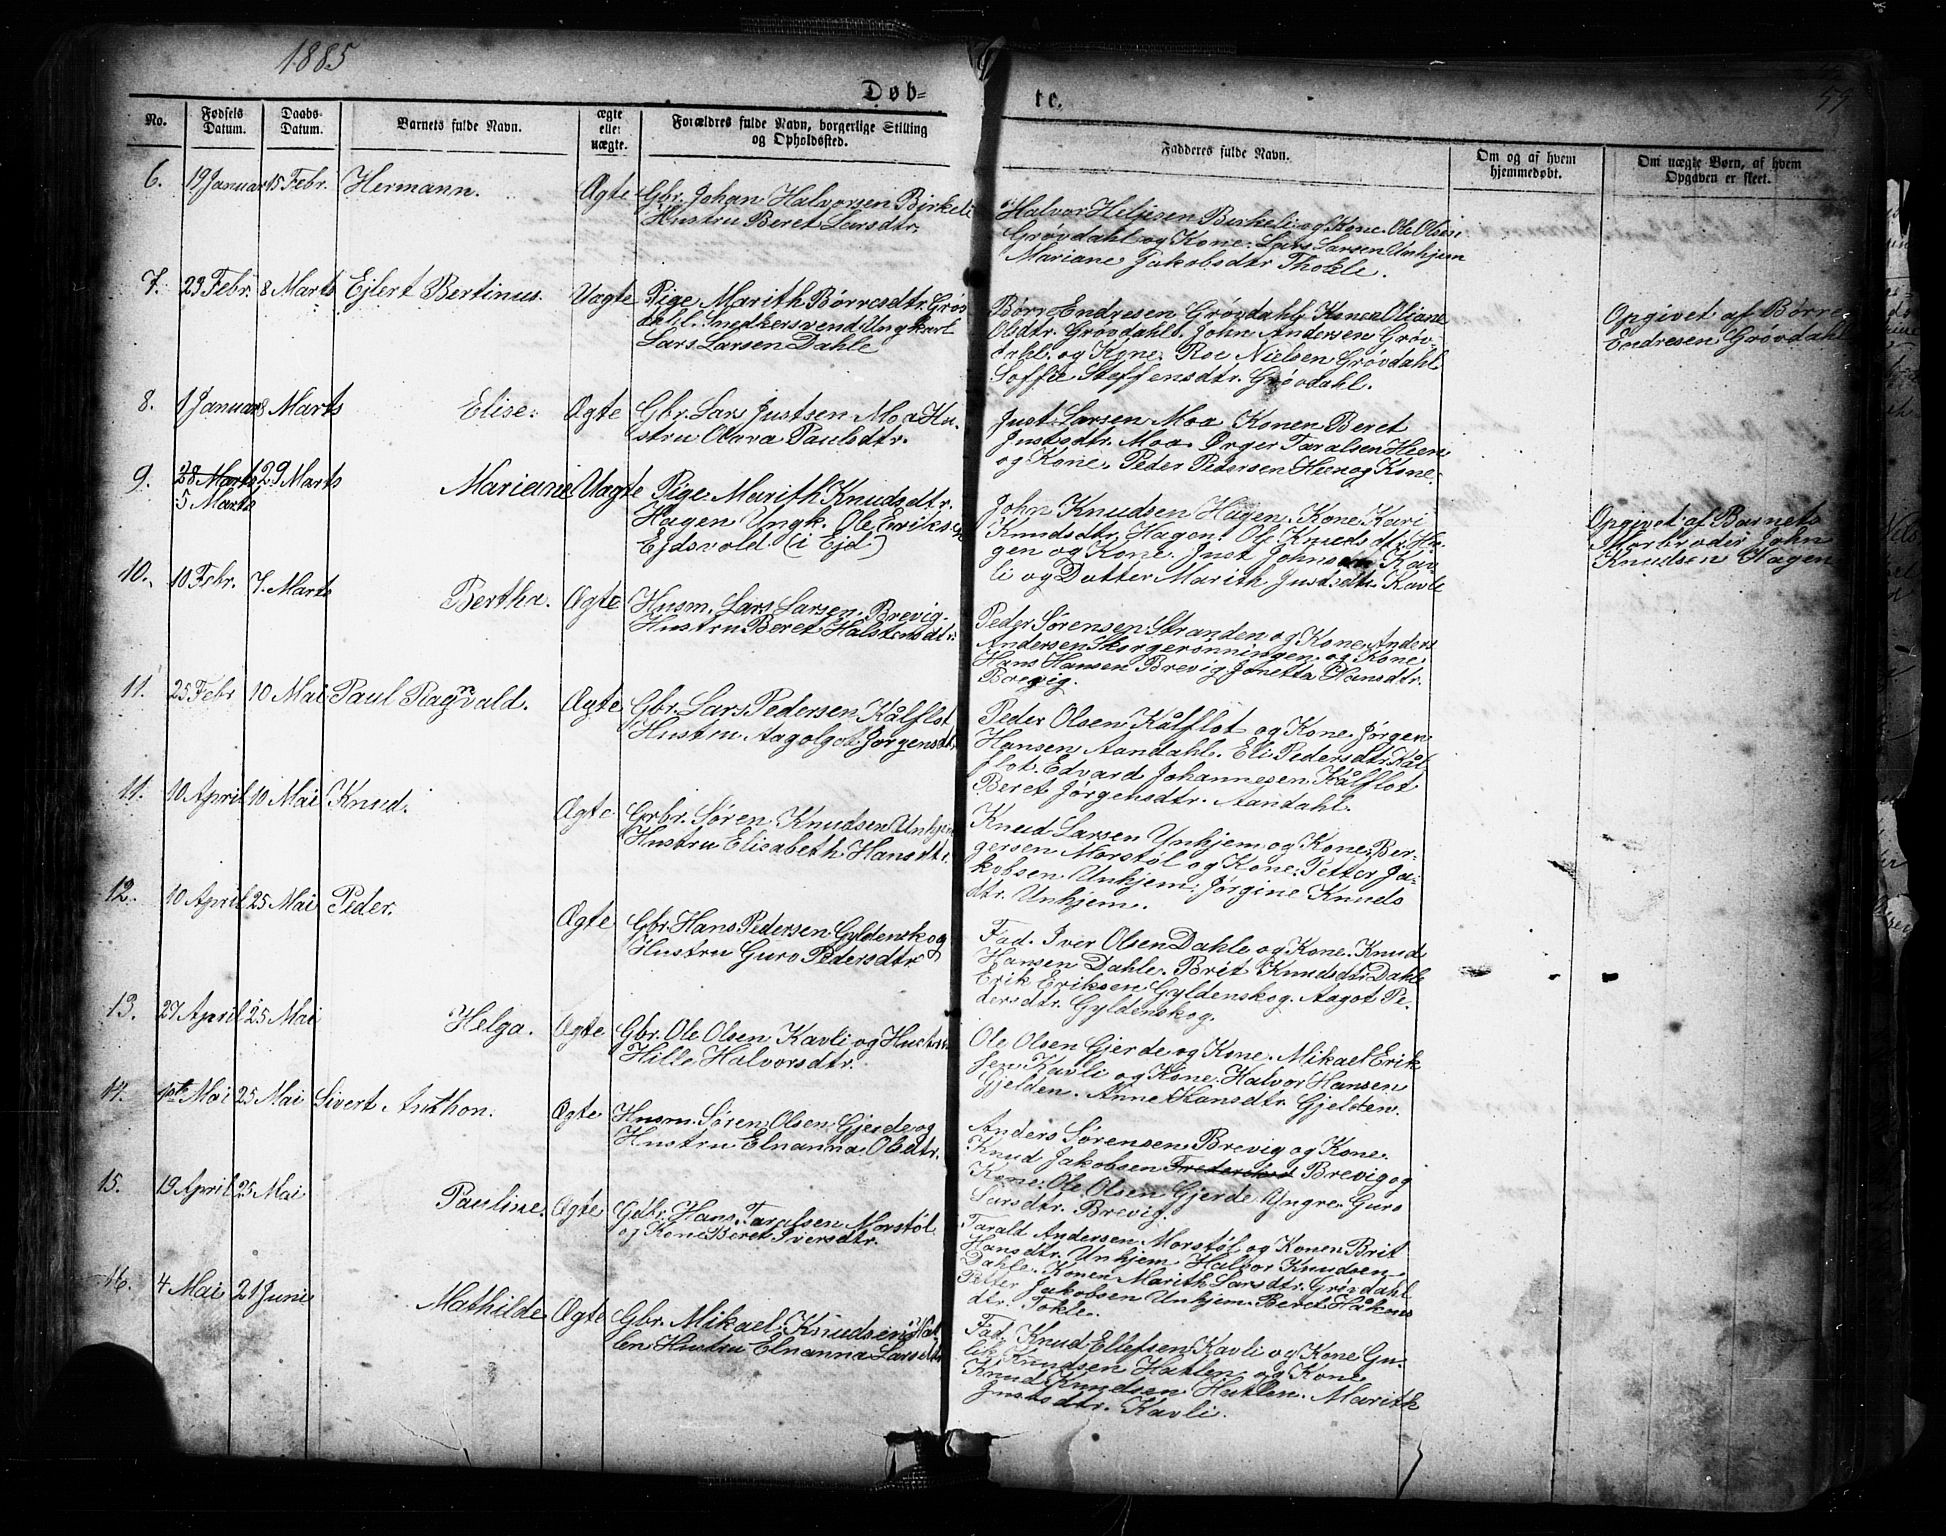 1885
59
Døb-
te.
No.
Fødsels Datum.
Daabs-Datum.
Barnets fulde Navn.
ægte eller uægte.
Forældres fulde Navn, borgerlige Stilling
og Opholdssted.
Fadderes fulde Navn.
Om og af hvem
hjemmedøbt.
Om uægte Børn, af hvem
Opgaven er skeet.
6. 19 Januar 15 Febr. Hermann. Ægte
Gbr. Johan Halvorsen Birkeli
Hustru Beret Larsdtr.
Halvor Heljesen Birkeli og Kone. Ole Olsen
Grøvdahl og Kone. Lars Larsen Unhjem
Mariane Jakobsdtr Thokle.
7. 23 Febr. 8 Marts Ejlert Bertinus. Uægte
Pige Marith Børresdtr. Grøv
dahl. Snedkersvend, Ungkarl
Lars Larsen Dahle
Børre Endresen Grøvdahl, Konen Oliane
Olsdtr. Grøvdahl, John Andersen Grøv-
dahl og Kone. Roe Nielsen Grøvdahl
Soffie Steffensdtr. Grøvdahl.
Opgivet af Børre
Endresen Grøvdahl
8. 1 Januar 8 Marts Elise. Ægte
Gbr. Lars Justsen Moa Hu-
stru Olava Paulsdtr.
Just Larsen Moa Konen Beret
Justsdtr. Moa. Ørger Taralsen Heen
og Kone. Peder Pedersen Hen og Kone.
9. 28 Marts 29 Marts Mariane Uægte
5 Marts
Pige Marith Knudsdtr.
Hagen Ungk. Ole Eriks
Ejdsvold. (i Ejd)
John Knudsen Hagen. Kone Kari
Knudsdtr. Hagen. Ole Knudsdtr. Ha-
gen og Kone. Just Johnsen Kav-
li og Datter Marith Justsdtr. Kavli
Opgivet af Barnets
Morbroder John
Knudsen Hagen
10. 10 Febr. 7. Marts Bertha. Ægte
Husm. Lars Larsen Brevig.
Hustru Beret Halstensdtr.
Peder Sørensen Stranden og Kone. Anders
Andersen Skorgerønningen og Kone.
Hans Hansen Brevig Jonetta Hansdtr.
Brevig.
11. 25 Febr 10 Mai Paul Ragnvald. Ægte
Gbr. Lars Pedersen Kålflot
Hustru Aagolgot Jørgensdtr.
Peder Olsen Kålflot og Kone. Jørgen
Hansen Aandahl. Eli Pedersdtr. Kål
flot. Edvard Johannesen Kålflot
Beret Jørgensdtr. Aandahl.
11. 10 April 10 Mai Knud. Ægte
Grbr. Søren Knudsen Unhjem
Hustru Elisabeth Hansdtr.
Knud Larsen Unhjem og Kone. Ber-
gersen Morstøl og Kone. Petter Ja-
kobsen Unhjem. Jørgine Knuds
dtr. Unhjem.
12. 10 April 25 Mai Peder. Ægte
Gbr. Hans Pedersen Gyldenskog
Hustru Guro Pedersdtr
Fad. Iver Olsen Dahle og Kone. Knud
Hansen Dahle. Brit Knudsdtr. Dahle
Erik Eriksen Gyldenskog. Aagot Pe-
dersdtr. Gyldenskog.
13. 27 April 25 Mai Helga. Ægte
Gbr. Ole Olsen Kavli og Hustru
Hille Halvorsdtr.
Ole Olsen Gjerde og Kone. Mikael Erik
sen Kavli og Kone. Halvor Hansen
Gjelden. Anne Hansdtr. Gjelden.
14. 1ste Mai 25 Mai Sivert Anthon. Ægte
Husm. Søren Olsen Gjerde og
Hustru Elnanna Olsdtr.
Anders Sørensen Brevig og Kone.
Knud Jakobsen Brevig og
Kone. Ole Olsen Gjerde Yngre. Guro
Larsdtr. Brevig.
15. 19 April 25 Mai Pauline. Ægte
Gdbr. Hans Taralsen Morstøl
og Kone Beret Iversdtr.
Tarald Andersen Morstøl og Konen Brit
Hansdtr. Unhjem Halvor Knudsen
Dahle. Konen Marith Larsdtr. Grøvdahl
Petter Jakobsen Unhjem. Beret Håkens
dtr. Tokle.
16. 4 Mai 21 Juni Mathilde Ægte
Gbr. Mikael Knudsen Hat
len Hustru Elnanna Larsdtr
Fad. Knud Ellefsen Kavli og Kone Gu-
lik Knudsen Hatlen og Kone
Knud Knudsen Hatlen. Marith
Justsdtr. Kavli.